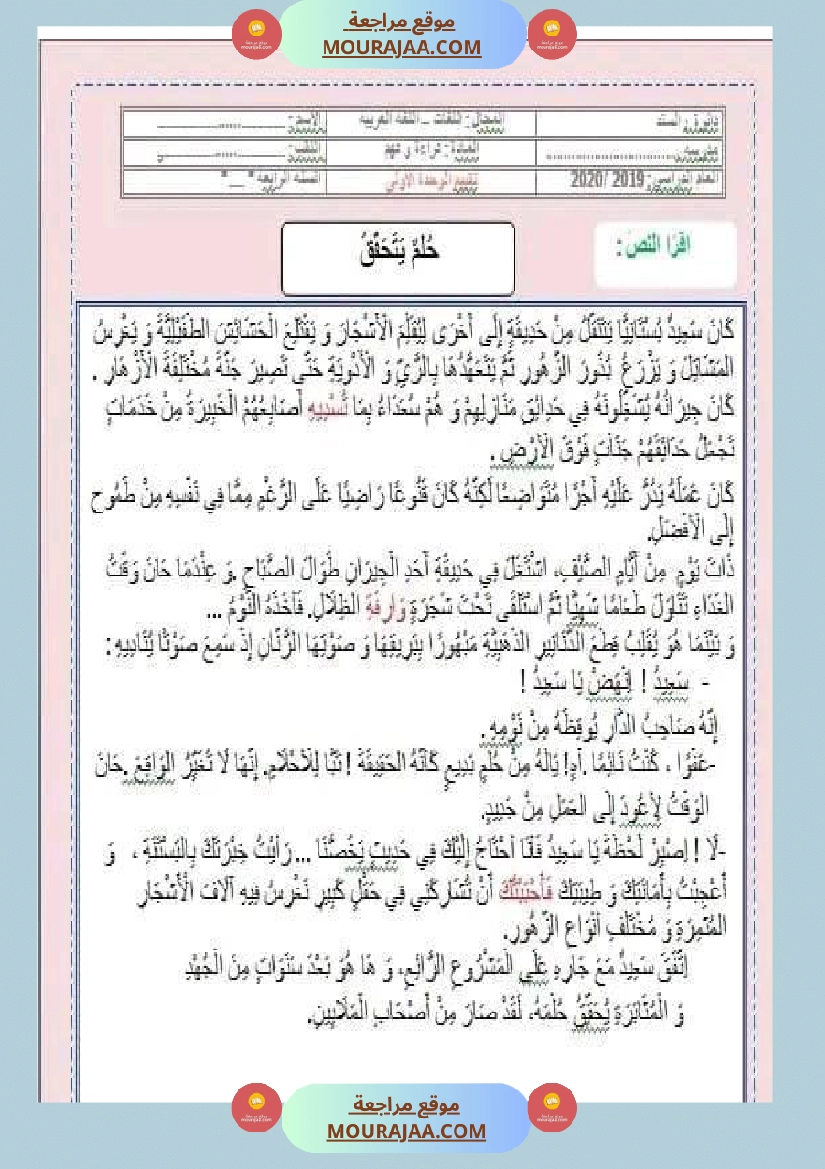 موقع مراجعة
MOURAJAA.COM
المجال: اللغات _ اللغة العربية
الاسم: ....................
المادة: قراءة و فهم
اللقب: ....................
العام الدراسي: 2019 /2020
تقييم الوحدة الأولى
السنة الرابعة " __ "
اقْرَأ النَّصَ :
حُلمٌ يَتَحَقَّقُ
كَانَ سَعِيدٌ بُسْتَانِيًّا يَتَنَقَّلُ مِنْ حَدِيقَةٍ إِلَى أُخْرَى لِيُقَلِّمَ الْأَشْجَارَ وَ يَقْتَلِعَ الْحَشَائِشَ الطُّفَيْلِيَّةَ وَ يَغْرِسُ
المَشَاتِلَ وَ يَزْرَعُ بُذُورَ الزُّهُورِ ثُمَّ يَتَعَهَّدُهَا بِالرَّيِّ وَ الْأَدْوِيَةِ حَتَّى تَصِيرَ جَنَّةً مُخْتَلِفَةَ الْأَزْهَارِ .
كَانَ جِيرَانُهُ يُشَغِّلُونَهُ فِي حَدَائِقِ مَنَازِلِهِمْ وَ هُمْ سُعَدَاءُ بِمَا تُسْدِيهِ أَصَابِعُهُمْ الْخَبِيرَةُ مِنْ خَدَمَاتٍ
تَجْعَلُ حَدَائِقَهُمْ جَنَّاتٍ فَوْقَ الْأَرْضِ .
كَانَ عَمَلُهُ يَدُرُّ عَلَيْهِ أَجْرًا مُتَوَاضِعًا لَكِنَّهُ كَانَ قَنُوعًا رَاضِيًا عَلَى الرُّغْمِ مِمَّا فِي نَفْسِهِ مِنْ طَمُوح
إِلَى الْأَفْضَلِ.
ذَاتَ يَوْمٍ مِنْ أَيَّامِ الصَّيْفِ، اشْتَغَلَ فِي حَدِيقَةِ أَحَدِ الْجِيرَانِ طُوَالَ الصَّبَاحِ .وَ عِنْدَمَا حَانَ وَقْتُ
الغَدَاءِ تَنَاوَلَ طَعَامًا شَهِيًّا ثُمَّ اسْتَلْقَى تَحْتَ شَجَرَةٍ وَارِفَةِ الظِّلَالِ. فَأَخَذَهُ النَّوْمُ ...
وَ بَيْنَمَا هُوَ يُقَلِّبُ قِطَعَ الدَّنَانِيرِ الذَّهَبِيَّةِ مَبْهُورًا بِبَرِيقِهَا وَ صَوْتِهَا الرَّنَّانِ إِذْ سَمِعَ صَوْتًا يُنَادِيهِ :
- سَعِيدُ ! اِنْهَضْ يَا سَعِيدُ !
إِنَّهُ صَاحِبُ الدَّارِ يُوقِظُهُ مِنْ نَوْمِهِ .
-عَفْوًا ، كُنْتُ نَائِمًا .آهٍ! يَالَهُ مِنْ حُلْمٍ بَدِيعٍ كَأَنَّهُ الحَقِيقَةُ ! تَبًّا لِلْأَحْلَامِ. إِنَّهَا لَا تُغَيِّرُ الْوَاقِعَ .حَانَ
الْوَقْتُ لِأَعُودَ إِلَى الْعَمَلِ مِنْ جَدِيدٍ.
-لَا ! اِصْبِرْ لَحْظَةً يَا سَعِيدُ فَأَنَا أَحْتَاجُ إِلَيْكَ فِي حَدِيثٍ يَخُصُّنَا ... رَأَيْتُ خِبْرَتَكَ بِالبَسْتَنَةِ ، وَ
أُعْجِبْتُ بِأَمَانَتِكَ وَ طِيبَتِكَ فَأَحْبَبْتُكَ أَنْ تُشَارِكَنِي فِي حَقْلٍ كَبِيرٍ نَغْرِسُ فِيهِ آلَافَ الْأَشْجَارِ
المُثْمِرَةِ وَ مُخْتَلِفِ أَنْوَاعِ الزُّهُورِ.
اِتَّفَقَ سَعِيدٌ مَعَ جَارِهِ عَلَى الْمَشْرُوعِ الرَّائِعِ، وَ هَا هُوَ بَعْدَ سَنَوَاتٍ مِنَ الْجُهْدِ
وَ الْمُثَابَرَةِ يُحَقِّقُ حُلْمَهُ، لَقَدْ صَارَ مِنْ أَصْحَابِ الْمَلَايِينِ.
موقع مراجعة
MOURAJAA.COM